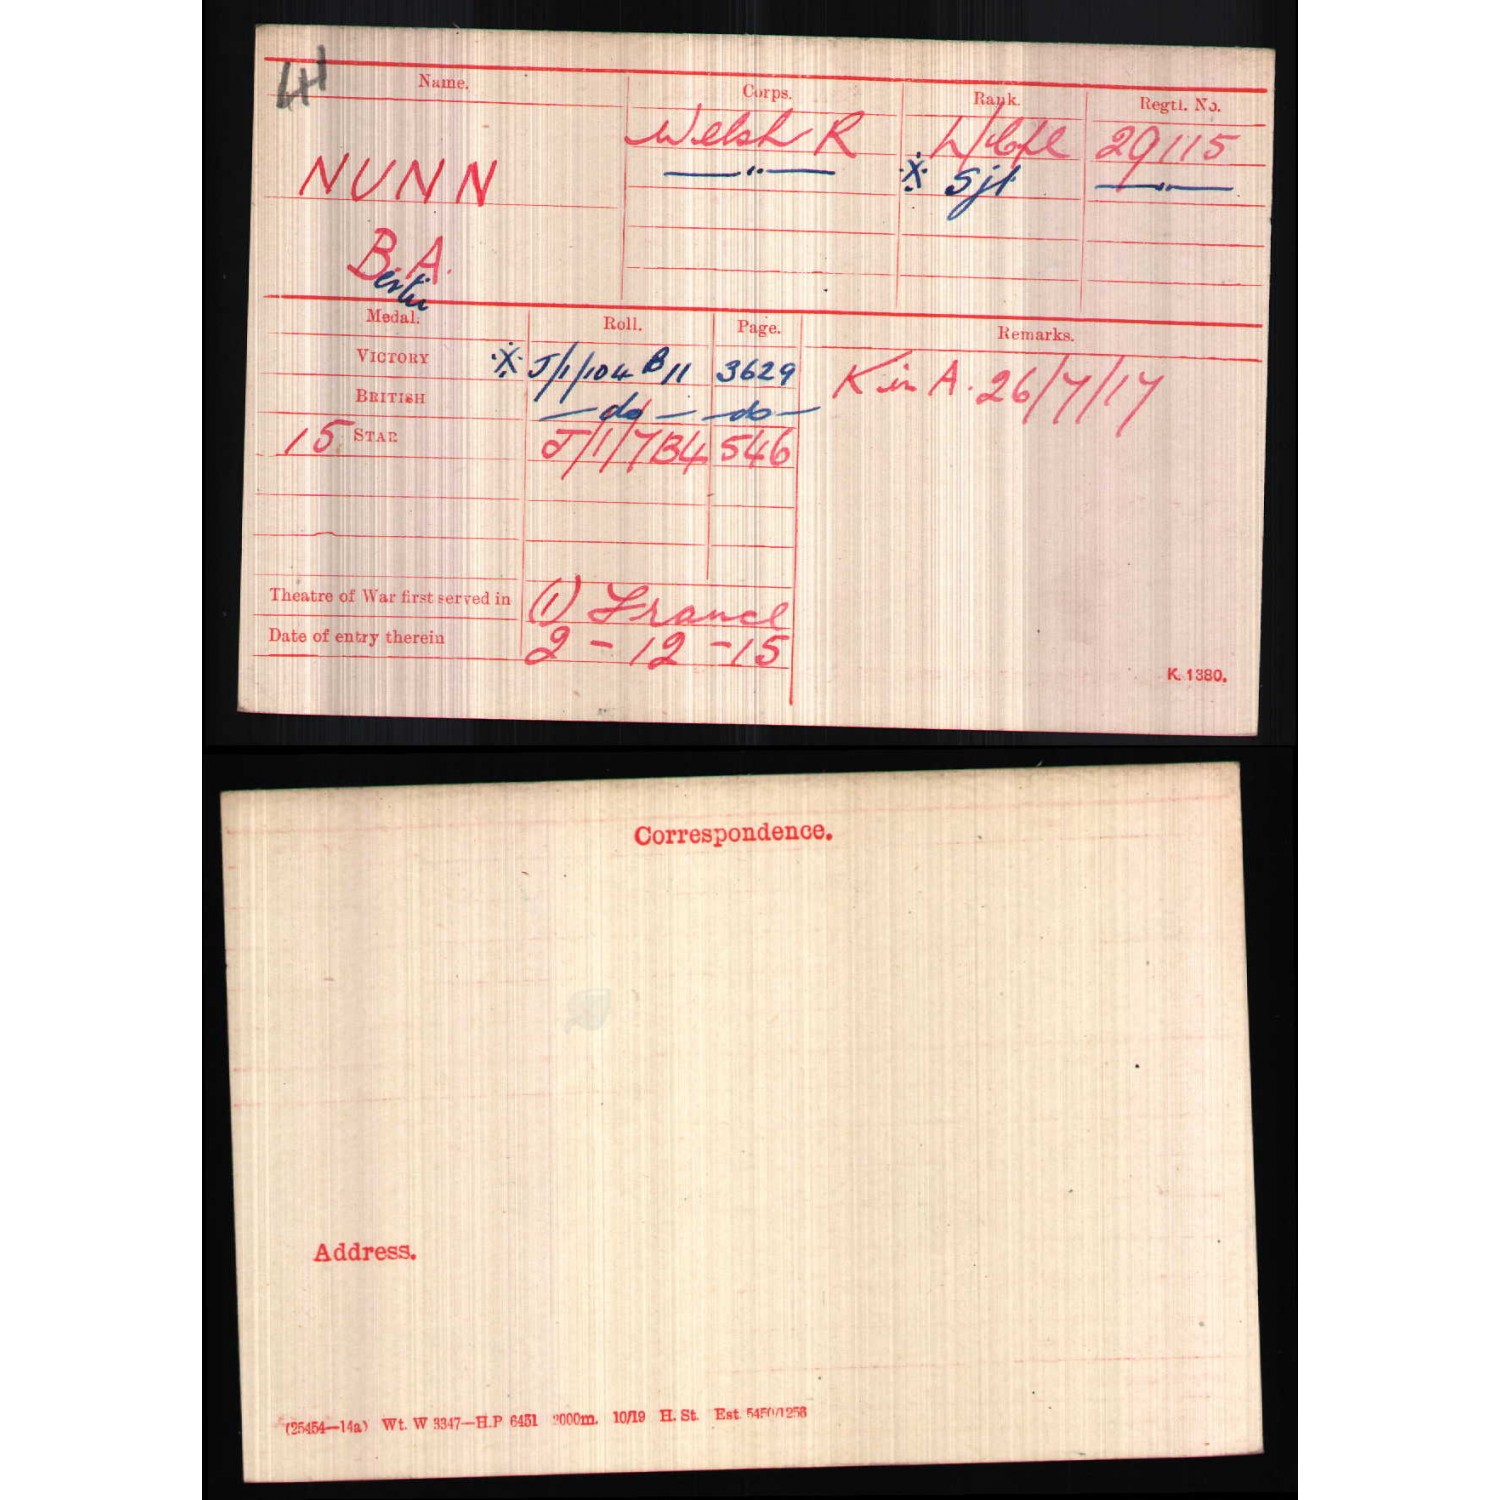 Name.
Corps.
Rank.
Regtl. No.
Welsh R
L/Cpl
29115
NUNN
—"—
※ Sjt
—"—
B. A.
ertie
Medal.
Roll.
Page.
Remarks.
VICTORY
※ J/1/104 B11
3629
K in A. 26/7/17
BRITISH
—do—
—do—
15 STAR
J/1/7B4
546
Theatre of War first served in
(1) France
Date of entry therein
2 - 12 - 15
K. 1380.
Correspondence.
Address.
(25454—14a) Wt. W 3347—H.P 6451 2000m. 10/19 H. St. Est. 5450/1256